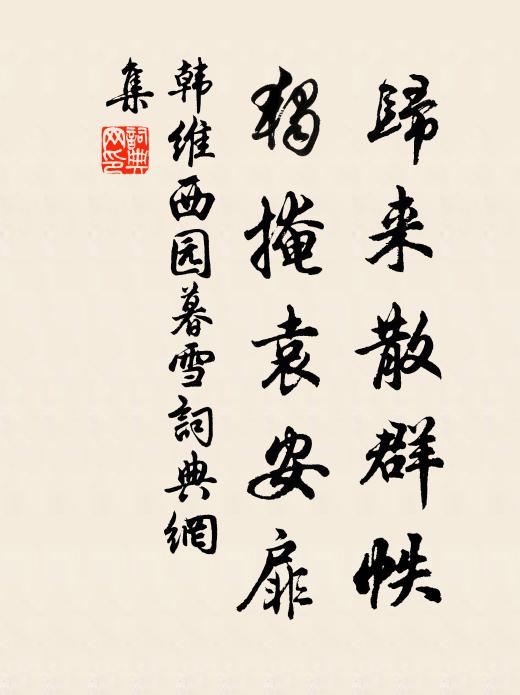 歸来散群帙
独掩袁安扉
韩维西园暮雪詞典網
集
詞典网印